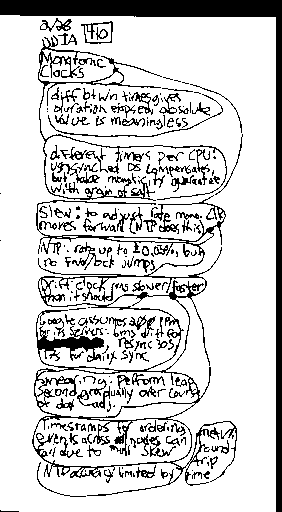 2/28
DDIA 410
Monotonic
Clocks
diff btwn times gives
duration elapsed, absolute
value is meaningless
different timers per CPU:
OS compensates,
but take monotonicity guarantee
with grain of salt
Slew: to adjust rate mono. clk
moves forward (NTP does this)
NTP: rate up to ±0.05%, but
no fwd/back jumps
Drift: clock runs slower/faster
than it should
Google assumes 200 ppm
for its servers: 6ms drift for
resync 30s,
17s for daily sync
Smearing: perform leap
second gradually over course
of day adj.
Timestamps for ordering
events across nodes can
fail due to skew
NTP accuracy limited by
network
round-
trip
time